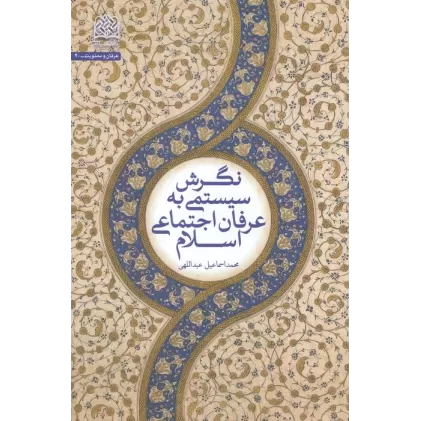 عرفان و معنویت - ۹
نگرش
سیستمی به
عرفان اجتماعی
اسلام
محمداسماعیل عبداللهی